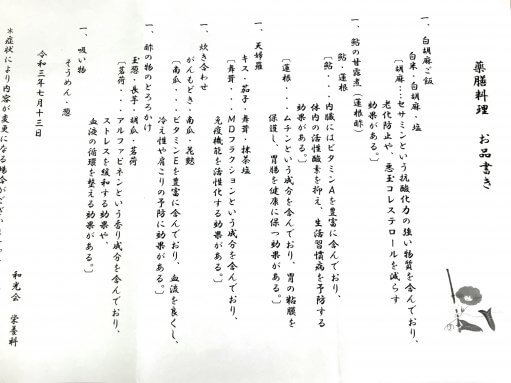 薬膳料理　お品書き
一、白胡麻ご飯
白米・白胡麻・塩
〔胡麻・・・セサミンという抗酸化力の強い物質を含んでおり、
老化防止や、悪玉コレステロールを減らす
効果がある。〕
一、鮎の甘露煮（蓮根酢）
鮎・蓮根
〔鮎・・・内臓にはビタミンAを豊富に含んでおり、
体内の活性酸素を抑え、生活習慣病を予防する
効果がある。〕
〔蓮根・・・ムチンという成分を含んでおり、胃の粘膜を
保護し、胃腸を健康に保つ効果がある。〕
一、天婦羅
キス・茄子・舞茸・抹茶塩
〔舞茸・・・MDフラクションという成分を含んでおり、
免疫機能を活性化する効果がある。〕
一、炊き合わせ
がんもどき・南瓜・花麩
〔南瓜・・・ビタミンEを豊富に含んでおり、血流を良くし、
冷え性や肩こりの予防に効果がある。〕
一、酢の物のとろろかけ
玉葱・長芋・胡瓜・茗荷
〔茗荷・・・アルファピネンという香り成分を含んでおり、
ストレスを緩和する効果や、
血液の循環を整える効果がある。〕
一、吸い物
そうめん・葱
令和三年七月十三日
和光会　栄養科
※症状により内容が変更になる場合がござい